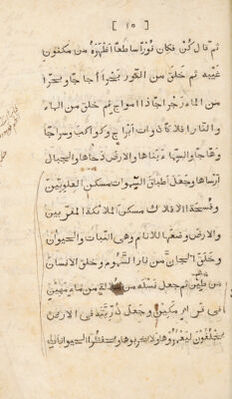 [ ١٥ ]
ثم قال كن فكان نورا ساطعا اظهره من مكنون
غيبه ثم خلق من النور بحرا اجاجا وبحرا
من الماء رجراجا ذا امواج ثم خلق من الماء
والنار افلاكا ذوات ابراج وكواكب وسراجا
وهاجا والسماء بناها والارض دحاها والجبال
ارساها وجعل اطباق السموات مسكن العلويين
وفسحة الافلاك مسكن الملائكة المقربين
والارض وضعها للانام وهي النبات والحيوان
وخلق الجان من نار السموم وخلق الانسان
من طين ثم جعل نسله من سلالة من ماء مهين
في قرار مكين وجعل ذريته في الارض
يخلفون ليعمروها ولا يخربوها